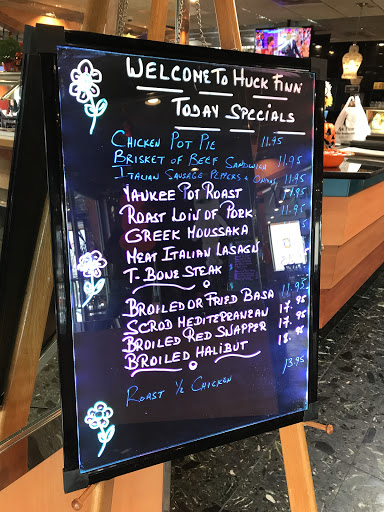 WELCOME TO HUCK FINN
TODAY SPECIALS
CHICKEN POT PIE 11.95
BRISKET OF BEEF SANDWICH 11.95
ITALIAN SAUSAGE PEPPERS & ONIONS 11.95
YANKEE POT ROAST 11.95
ROAST LOIN OF PORK 11.95
GREEK MOUSSAKA
MEAT ITALIAN LASAGN
T. BONE STEAK
BROILED OR FRIED BASA 11.95
SCROD MEDITERRANEAN 17.95
BROILED RED SNAPPER 17.95
BROILED HALIBUT 18.95
ROAST ½ CHICKEN 13.95